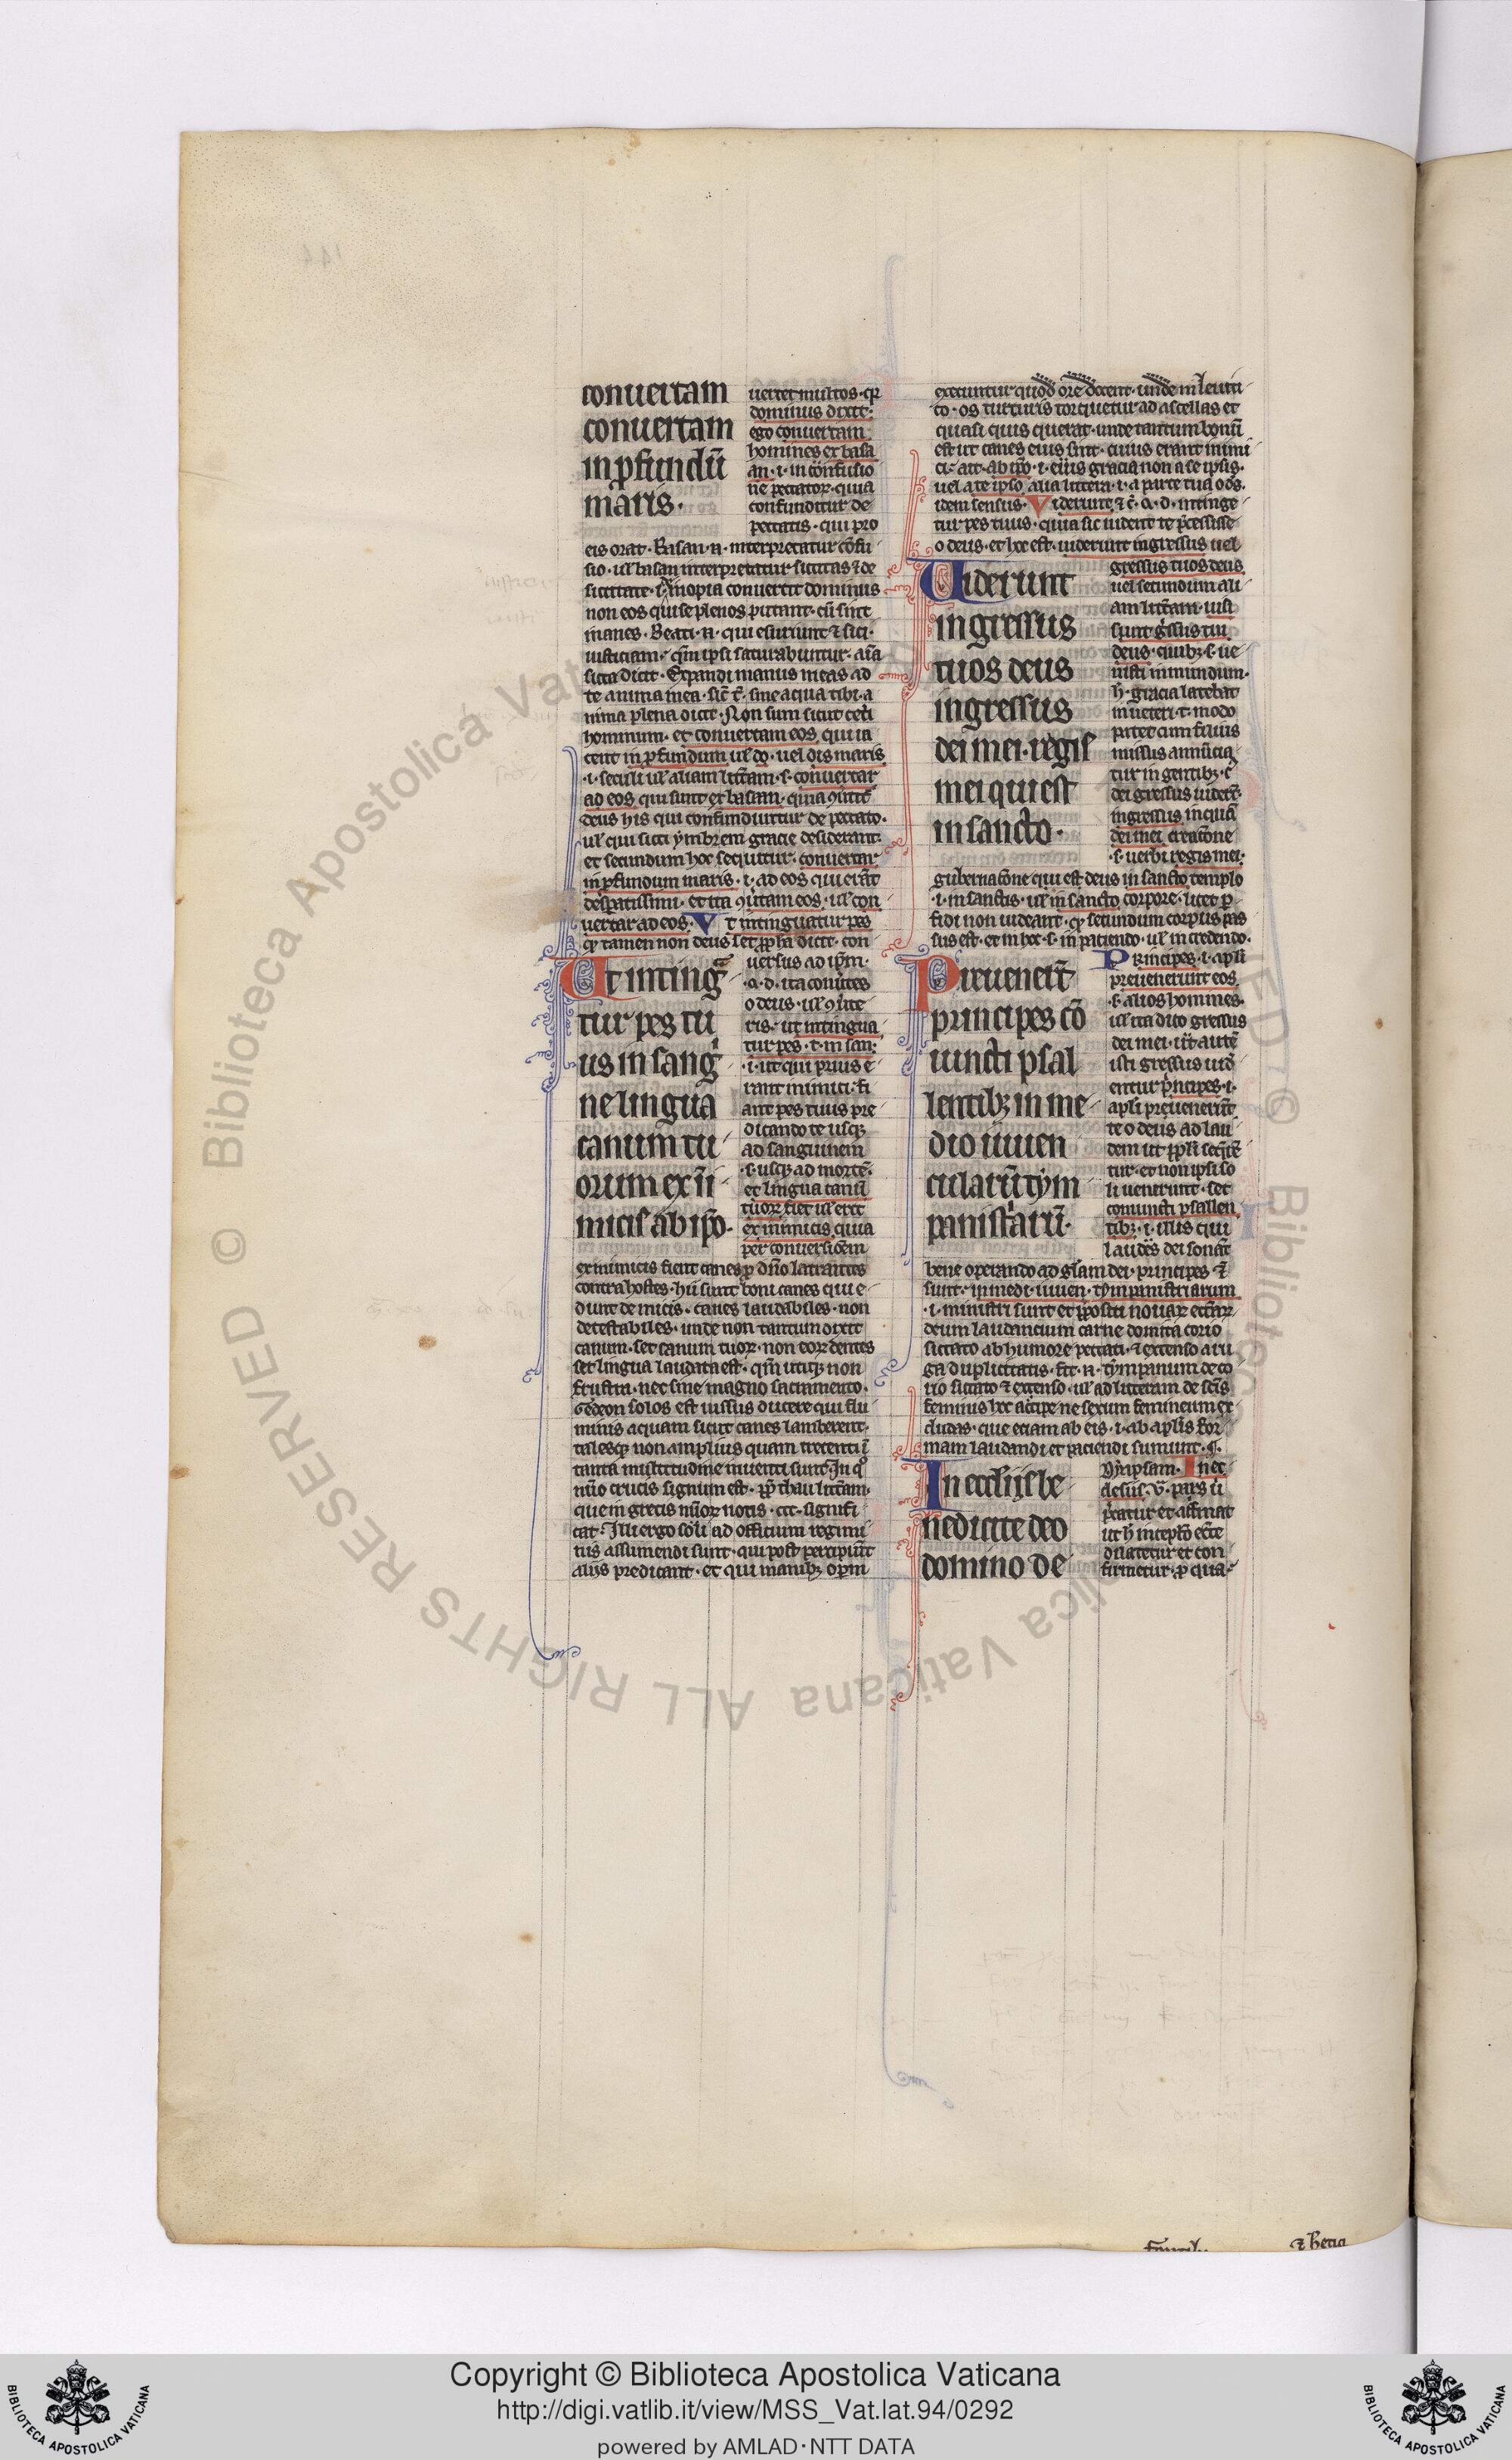 conuertam
conuertam
in pfundū
maris·
uertet multos·
dominus dixit·
ego conuertam
homines ex basa
an·i·in confusio
ne peccator·quia
confunditur de
peccatis·qui pro
eis orat·Basan·n·interpretatur cōfu
sio·ul basan interpretatur siccitas ⁊ de
siccitate inopia conuertit dominus
non eos qui se plenos putant·cū sint
inanes·Beati·n·qui esuriunt ⁊ sici·
iusticiam·qm̄ ipsi saturabuntur·aīa
sicca dicit·Expandi manus meas ad
te anima mea·sic̄ t̄·sine aqua tibi·a
nima plena dicit·Non sum sicut ceti
hominum·et conuertam eos qui ia
cent in pfundum ul do·uel dis maris
·i·seculi ul aliam litt̄am·s·conuertar
ad eos qui sunt ex basam·quia
deus his qui confundūtur de peccato·
ul qui sicci ymbrem gracie desiderant·
et secundum hoc sequitur·conuertar
in pfundum maris·i·ad eos qui erāt
despatissimi·et ita 9uertam eos·ul con
uertar ad eos·Vt intinguatur pes
tamen non deus set ppha dicit·con
Ut inting
tur pes tu
us in sang
ne lingua
canum tu
orum ex ii
micis ab ipo·
uersus ad ipm·
·q·d·ita conuertes
o deus·ul 9uerte
ris·ut intingua
tur pes·t·in san·
·i·ut qui prius e
rant inimici·fi
ant pes tuus pre
dicando te usq
ad sanguinem
·s·usq ad mortē·
et lingua canū
tuor fiet ul erit
ex inimicis quia
per conuersiōem
ex inimicis fient canes p dn̄o latrantes
contra hostes·hii sunt boni canes qui e
dunt de micis·canes laudabiles·non
detestabiles·unde non tantum dixit
canum·set canum tuor·non eor dentes
set lingua laudata est·qm̄ utiq non
frustra·nec sine magno sacramento·
Gedeon solos est iussus ducere qui flu
minis aquam sicut canes lamberent·
talesq non amplius quam trecenti ī
tanta multitudine inuenti sunt·In q
nūo crucis signum est·pp thau litt̄am·
que in grecis nūor notis·ccc·signifi
cat·Illi ergo soli ad officium regimi
nis assumendi sunt·qui post percipiūt
aliis predicant·et qui manib opm
execuntur quod ore docent·unde in leuiti
co·os turturis torquetur ad ascellas et
quasi quis querat·unde tantum bonū
est ut canes eius sint·cuius erant inimi
ci·ait·ab ipo·i·eius gracia non a se ipsis·
uel a te ipso alia littera·i·a parte tua o ds·
idem sensus·Viderunt ⁊ c̄·q·d·intinge
tur pes tuus·quia sic uident te pcessisse
o deus·et hoc est·uiderunt ingressus uel
Uiderunt
ingressus
tuos deus
ingressus
dei mei·regis
mei qui est
in sancto·
gressus tuos deus
uel secundum ali
am litt̄am·uisi
sunt gssus tui
deus·quib·s·ue
nisti in mundum·
h·gracia latebat
in ueteri·t·modo
pater cum filius
missus annūcia
tur in gentib·
dei gressus uidēt·
ingressus inquā
dei mei creatōne
·s·uerbi regis mei·
gubernatōne qui est deus in sancto templo
·i·in sanctis·ul in sancto corpore·licet p
fidi non uideant·q secundum corpus pas
sus est·et in hoc·s·in paciendo·ul in credendo·
Preuenert̄
principes cō
iuncti psal
lentib in me
dio iuuen
cularū tym
panistriarū·
Principes·i·apli
preuenerunt eos
·s·alios homines·
ul ita dico gressus
dei mei·uīt autē
isti gressus uid
entur pncipes·i·
apli preuenerūt
te o deus ad lau
dem ut ppli seq
tur·et non ipsi so
li uenerunt·set
coniuncti psallen
tib·i·illis qui
laudes dei sonāt
bene operando ad glam dei·principes ⁊
sunt·in medi·iuuen·tympanistriarum
·i·ministri sunt et ppositi nouar eccl̄iar
deum laudancium carne domita corio
siccato ab humore peccati·⁊ extenso a ru
ga duplicitatis·fit·n·tympanum de co
rio siccato ⁊ extenso·ul ad litteram de scīs
feminis hoc accipe ne sexum femineum ex
cludas·que eciam ab eis·i·ab aplis for
mam laudandi et paciendi sumunt·¶·
In ecclijs be
nedicite deo
domino de
In ec
clesiis·v·pars ii
pcatur et affirmat
ut h incepto ecc̄e
dilatetur et con
firmetur·p qua
⁊ hecia
Copyright © Biblioteca Apostolica Vaticana
http://digi.vatlib.it/view/MSS_Vat.lat.94/0292
powered by AMLAD·NTT DATA
BIBLIOTECA APOSTOLICA VATICANA
BIBLIOTECA APOSTOLICA VATICANA
© Biblioteca Apostolica Vaticana ALL RIGHTS RESERVED